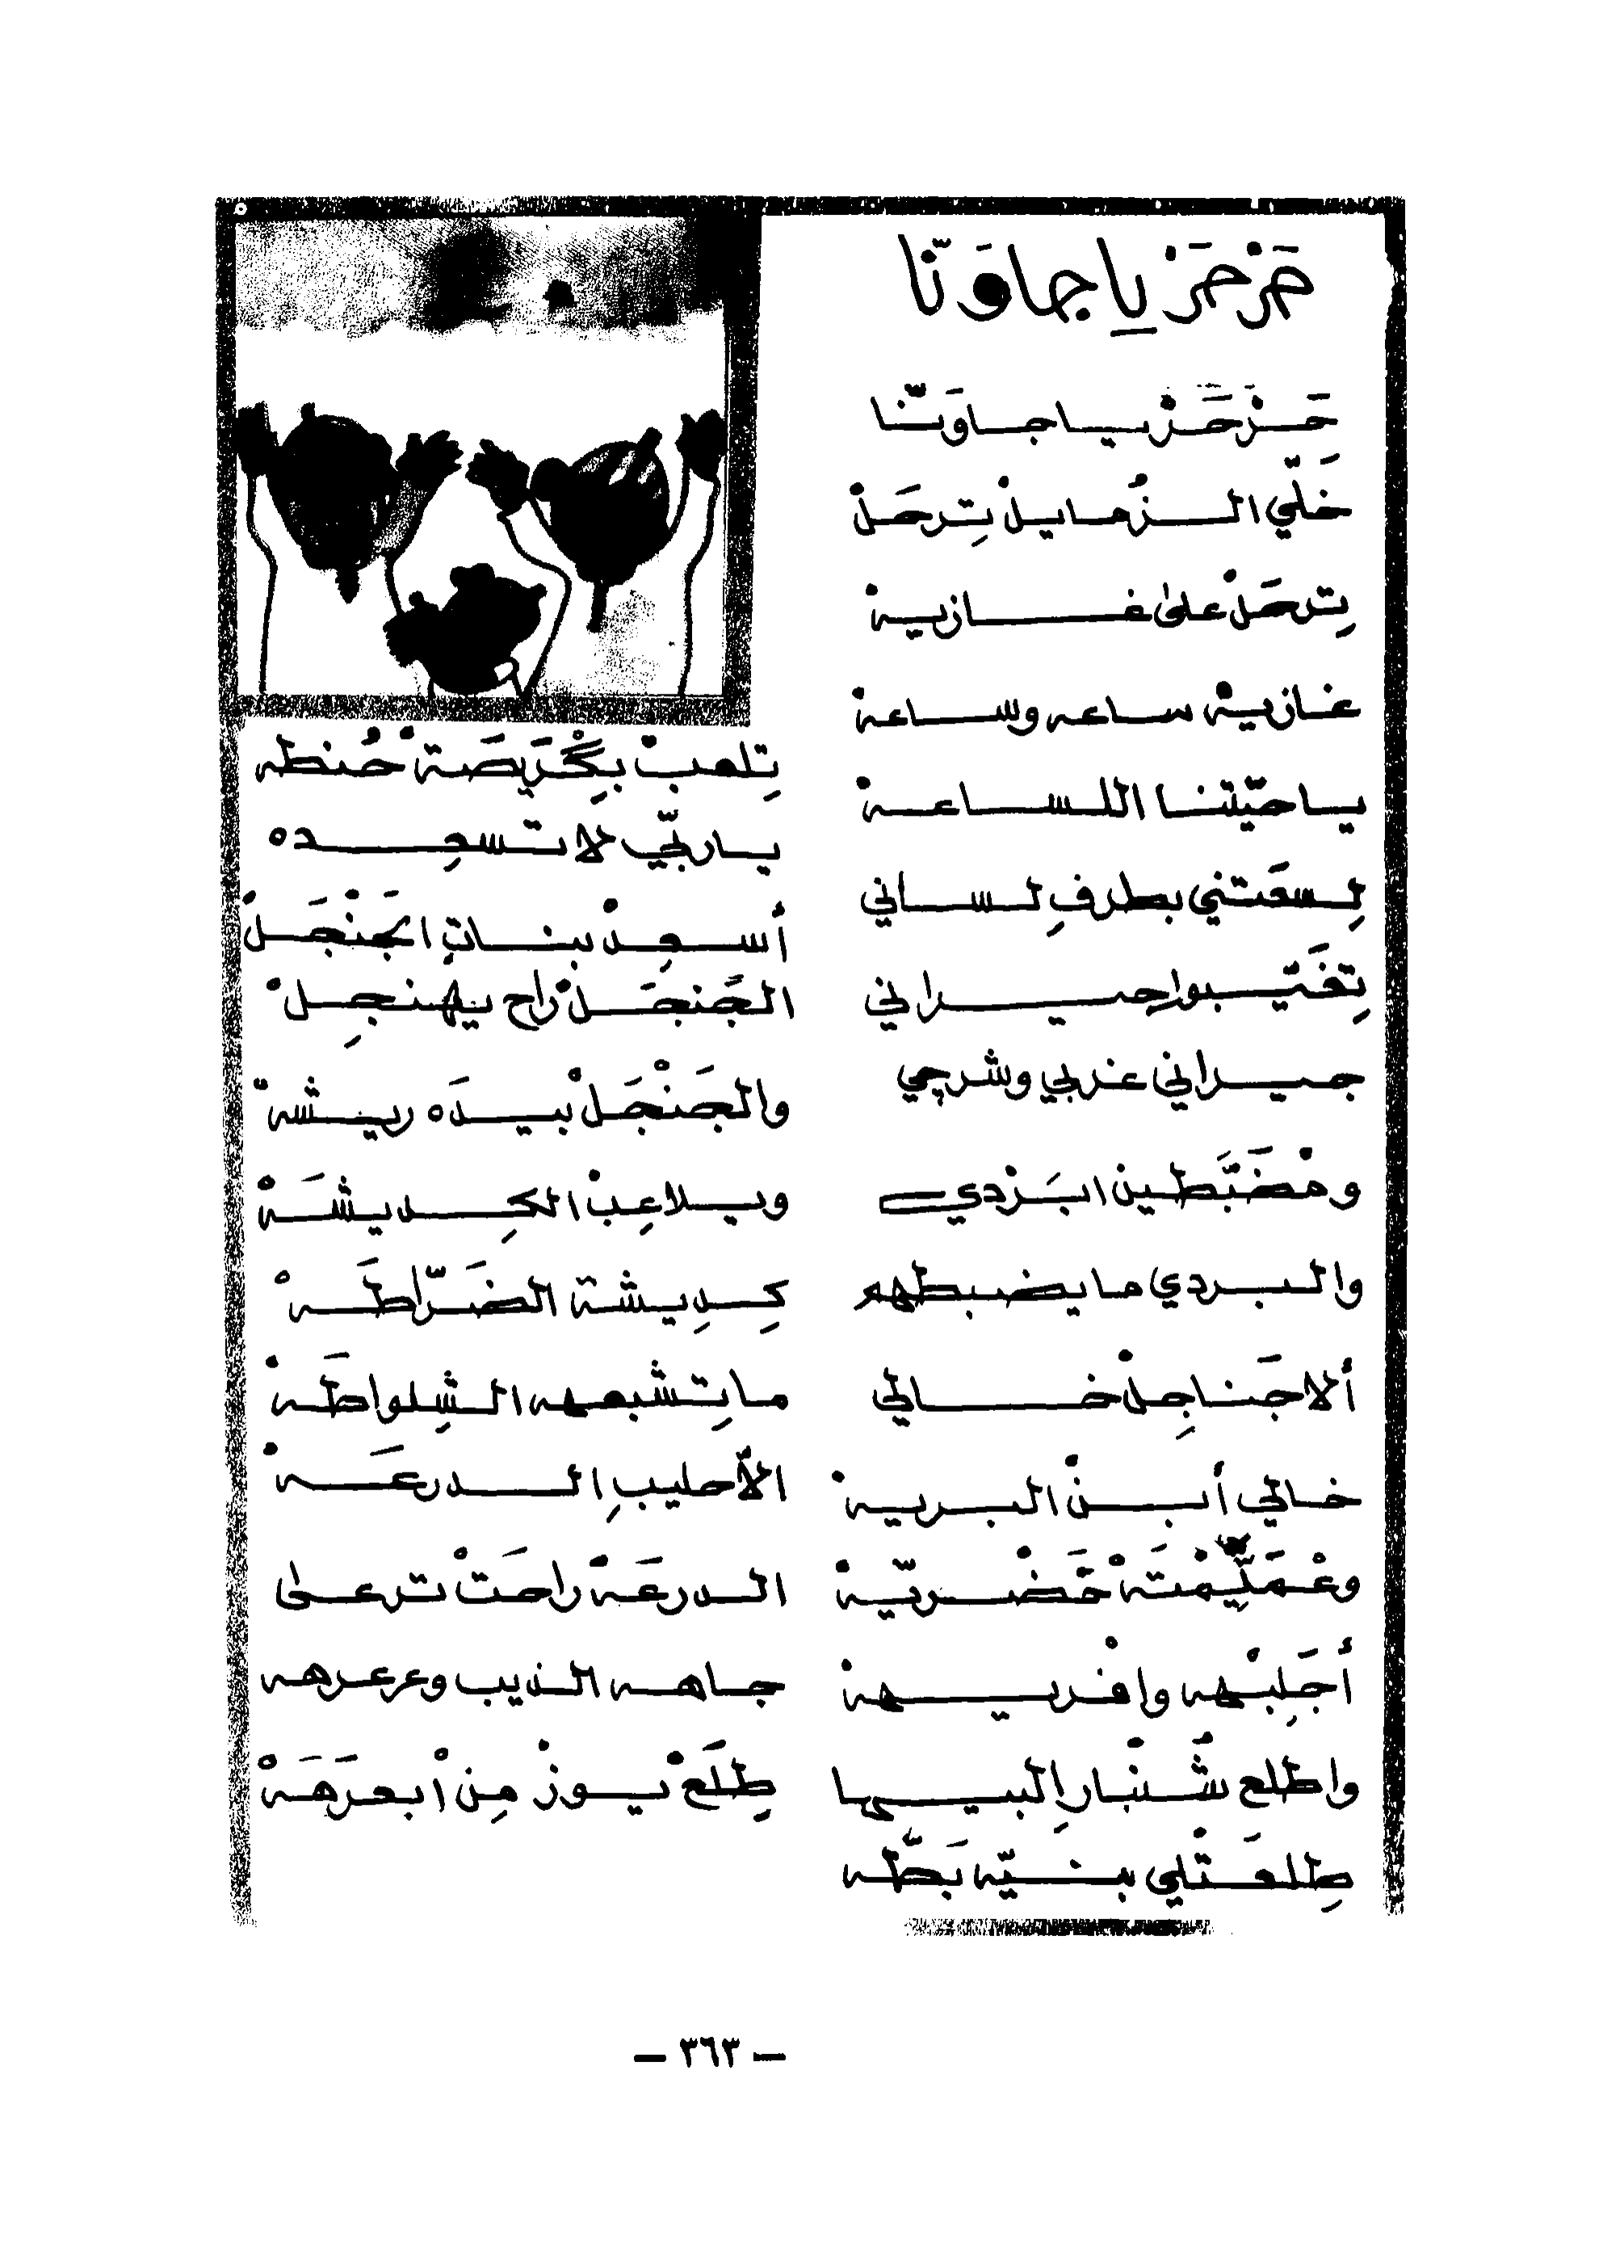 حَزْحَزْ يا جاوَنّا
حَزْحَزْ يا جاوَنّا
خَلّي الزُمايلْ تِرحَلْ
تِرحَلْ على غازيةْ
غازيةْ ساعه وساعةْ
يا حيّتنا اللساعةْ
لِسعَتني بطرفِ لساني
تِغَيّبوا جيراني
جيراني غربي وشرجي
ومْضَبَّطين البَرْدي
والبردي ما يضبطهم
ألا جَناجِلْ خالي
خالي أبنْ البريةْ
وعْمَيِّمْتَهْ خَضْريّةْ
أجَلِبْهه وإفْريههْ
واطلع شُنْبارِ البيها
طِلعَتْلي بنيّه بَطّه
تِلعبْ بِكْرَيصَةْ حُنطه
يا ربّي لا تسعِده
أسعِدْ بناتِ الجَنْجَلْ
الجَنجَلْ راح يهنجِلْ
والجَنْجَلْ بيدَه ريشةْ
ويلاعِبْ الكِديشَةْ
كِدِيشة الضَرّاطَهْ
ما تِشبعهه الشِلواطَهْ
الّا حليبِ الدرعَهْ
الدرعَهْ راحَتْ ترعى
جاهه الذيب وعرعرهه
طِلَعْ يوزْ مِن أبعرَهَهْ
– ٣٦٣ –